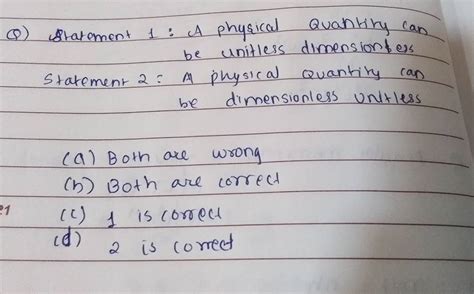 Q) Statement 1 : A physical Quantity can
be unitless dimensionless
Statement 2 : A physical Quantity can
be dimensionless unitless
(a) Both are wrong
(b) Both are correct
(c) 1 is correct
(d) 2 is correct